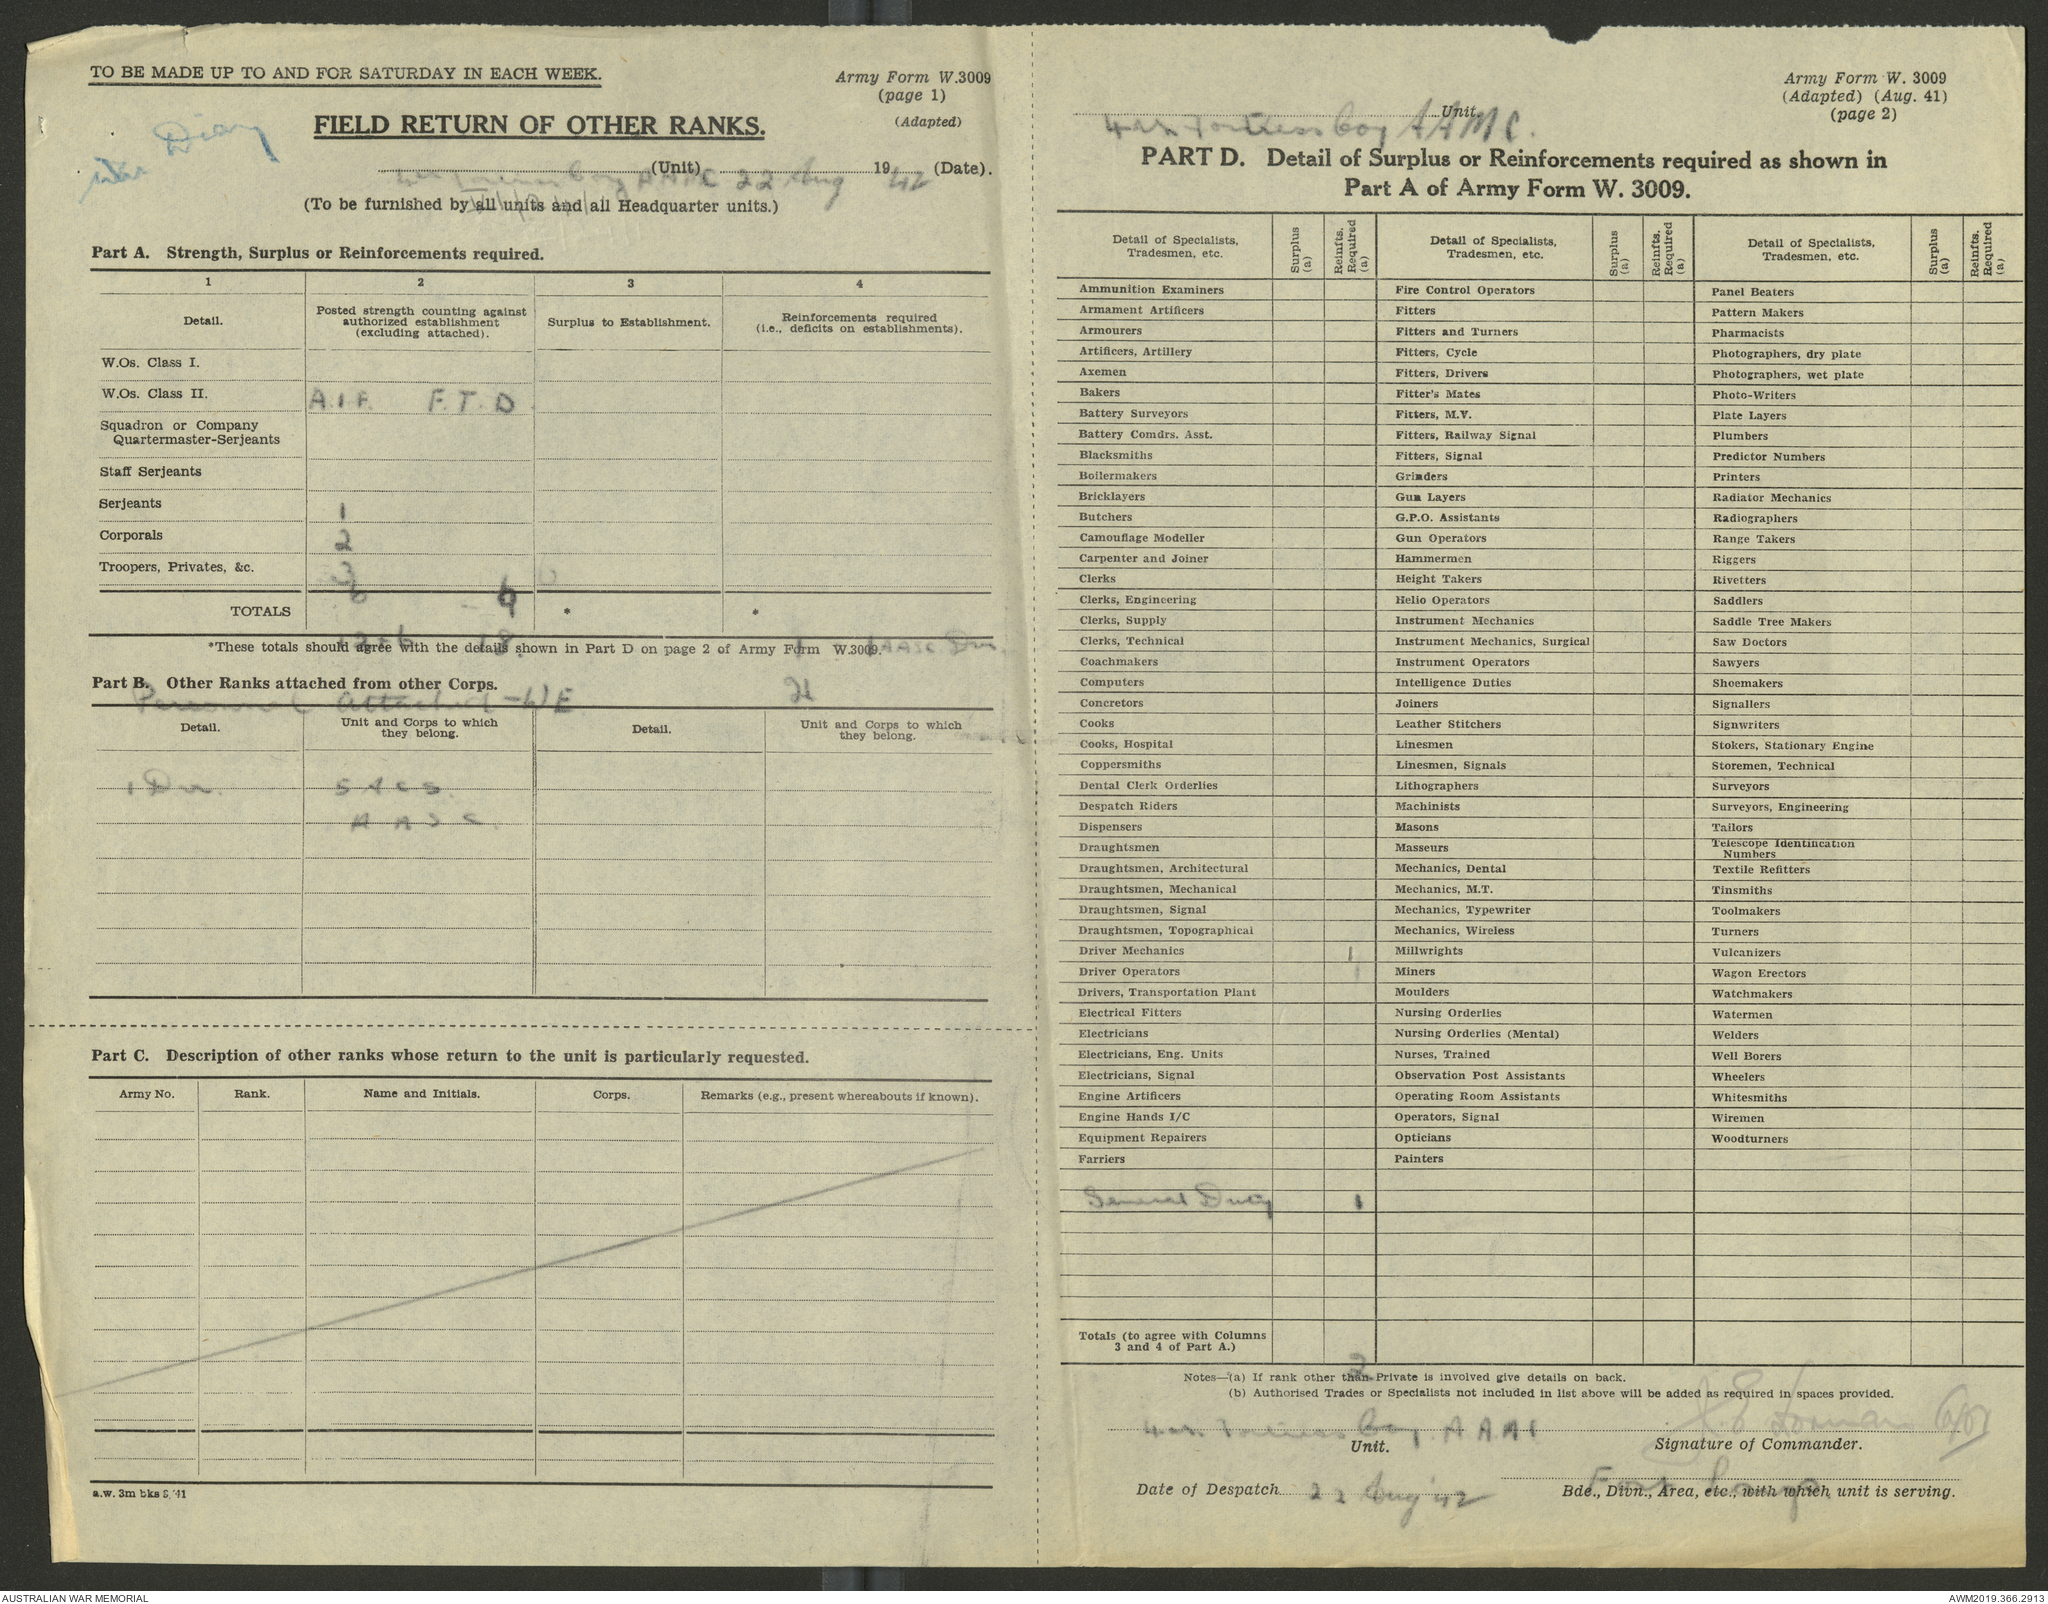 TO BE MADE UP TO AND FOR SATURDAY IN EACH WEEK.
Army Form W.3009
(page 1)
(Adapted)
War Diary
FIELD RETURN OF OTHER RANKS.
Fortress Coy AAMC (Unit) 22 Aug 1942 (Date).
(To be furnished by all units and all Headquarter units.)
Part A. Strength, Surplus or Reinforcements required.
1 2 3 4
Detail. Posted strength counting against authorized establishment (excluding attached). Surplus to Establishment. Reinforcements required (i.e., deficits on establishments).
W.Os. Class I.
W.Os. Class II. A.I.F. F.T.D.
Squadron or Company
Quartermaster-Serjeants
Staff Serjeants
Serjeants 1
Corporals 2
Troopers, Privates, &c. 3
6
TOTALS * *
*These totals should agree with the details shown in Part D on page 2 of Army Form W.3009.
Part B. Other Ranks attached from other Corps.
Personnel Attached
Detail. Unit and Corps to which they belong. Detail. Unit and Corps to which they belong.
1 Dvr.
A A S C.
Part C. Description of other ranks whose return to the unit is particularly requested.
Army No. Rank. Name and Initials. Corps. Remarks (e.g., present whereabouts if known).
a.w. 3m bks 8/41
Army Form W. 3009
(Adapted) (Aug. 41)
(page 2)
Fortress Coy AAMC. Unit.
PART D. Detail of Surplus or Reinforcements required as shown in
Part A of Army Form W. 3009.
Detail of Specialists, Tradesmen, etc. Surplus (a) Reinfts. Required (a) Detail of Specialists, Tradesmen, etc. Surplus (a) Reinfts. Required (a) Detail of Specialists, Tradesmen, etc. Surplus (a) Reinfts. Required (a)
Ammunition Examiners Fire Control Operators Panel Beaters
Armament Artificers Fitters Pattern Makers
Armourers Fitters and Turners Pharmacists
Artificers, Artillery Fitters, Cycle Photographers, dry plate
Axemen Fitters, Drivers Photographers, wet plate
Bakers Fitter's Mates Photo-Writers
Battery Surveyors Fitters, M.V. Plate Layers
Battery Comdrs. Asst. Fitters, Railway Signal Plumbers
Blacksmiths Fitters, Signal Predictor Numbers
Boilermakers Grinders Printers
Bricklayers Gun Layers Radiator Mechanics
Butchers G.P.O. Assistants Radiographers
Camouflage Modeller Gun Operators Range Takers
Carpenter and Joiner Hammermen Riggers
Clerks Height Takers Rivetters
Clerks, Engineering Helio Operators Saddlers
Clerks, Supply Instrument Mechanics Saddle Tree Makers
Clerks, Technical Instrument Mechanics, Surgical Saw Doctors
Coachmakers Instrument Operators Sawyers
Computers Intelligence Duties Shoemakers
Concretors Joiners Signallers
Cooks Leather Stitchers Signwriters
Cooks, Hospital Linesmen Stokers, Stationary Engine
Coppersmiths Linesmen, Signals Storemen, Technical
Dental Clerk Orderlies Lithographers Surveyors
Despatch Riders Machinists Surveyors, Engineering
Dispensers Masons Tailors
Draughtsmen Masseurs Telescope Identification Numbers
Draughtsmen, Architectural Mechanics, Dental Textile Refitters
Draughtsmen, Mechanical Mechanics, M.T. Tinsmiths
Draughtsmen, Signal Mechanics, Typewriter Toolmakers
Draughtsmen, Topographical Mechanics, Wireless Turners
Driver Mechanics 1 Millwrights Vulcanizers
Driver Operators Miners Wagon Erectors
Drivers, Transportation Plant Moulders Watchmakers
Electrical Fitters Nursing Orderlies Watermen
Electricians Nursing Orderlies (Mental) Welders
Electricians, Eng. Units Nurses, Trained Well Borers
Electricians, Signal Observation Post Assistants Wheelers
Engine Artificers Operating Room Assistants Whitesmiths
Engine Hands I/C Operators, Signal Wiremen
Equipment Repairers Opticians Woodturners
Farriers Painters
General Duty 1
Totals (to agree with Columns
3 and 4 of Part A.) 2
Notes—(a) If rank other than Private is involved give details on back.
(b) Authorised Trades or Specialists not included in list above will be added as required in spaces provided.
Fortress Coy. AAMC
Unit. Signature of Commander.
Date of Despatch 22 Aug 42 Bde., Divn., Area, etc., with which unit is serving.
AUSTRALIAN WAR MEMORIAL
AWM2019.366.2913